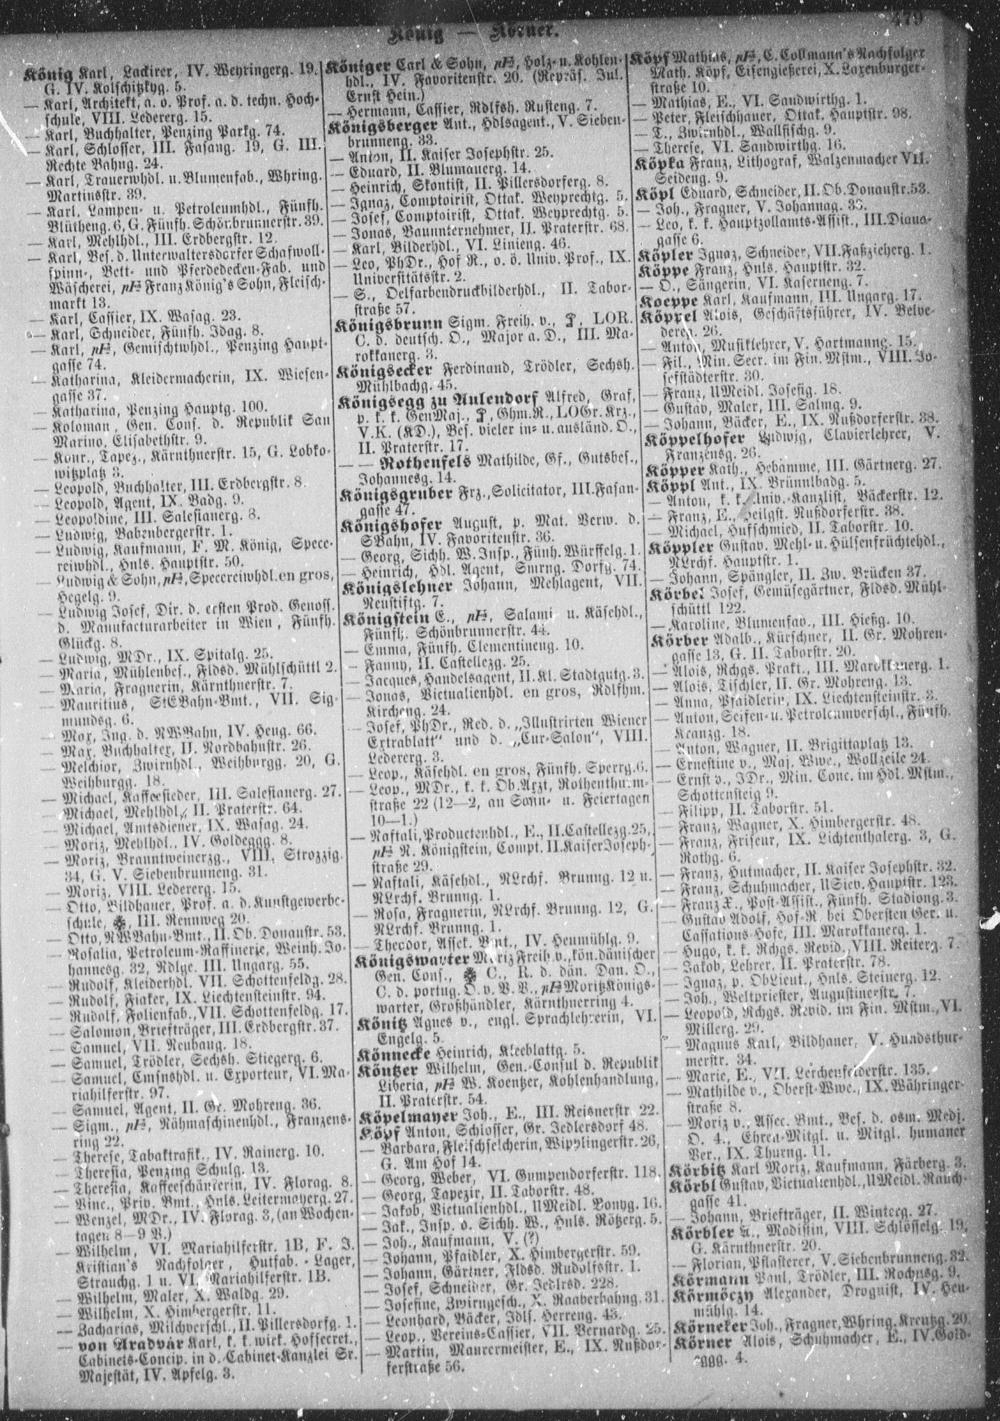 479
König — Körner.
König Karl, Lackirer, IV. Weyringerg. 19,
G. IV. Kolschitzkyg. 5.
— Karl, Architekt, a. o. Prof. a. d. techn. Hoch-
schule, VIII. Lederg. 15.
— Karl, Buchhalter, Penzing Parkg. 74.
— Karl, Schlosser, III. Fasang. 19, G. III.
Rechte Bahng. 24.
— Karl, Trauerwhdl. u. Blumenfab., Whring.
Martinsstr. 39.
— Karl, Lampen- u. Petroleumhdl., Fünfh.
Blütheng. 6, G. Fünfh. Schönbrunnerstr. 39.
— Karl, Mehlhdl., III. Erdbergstr. 12.
— Karl, Bes. d. Unterwaltersdorfer Schafwoll-
spinn-, Bett- und Pferdedecken-Fab. und
Wäscherei, pP Franz König's Sohn, Fleisch-
markt 13.
— Karl, Cassier, IX. Wasag. 23.
— Karl, Schneider, Fünfh. Idag. 8.
— Karl, pP, Gemischtwhdl., Penzing Haupt-
gasse 74.
— Katharina, Kleidermacherin, IX. Wiesen-
gasse 37.
— Katharina, Penzing Hauptg. 100.
— Koloman, Gen. Cons. d. Republik San
Marino, Elisabethstr. 9.
— Konr., Tapez., Kärnthnerstr. 15, G. Lobko-
witzplatz 3.
— Leopold, Buchhalter, III. Erdbergstr. 8.
— Leopold, Agent, IX. Badg. 9.
— Leopoldine, III. Salesianerg. 8.
— Ludwig, Babenbergerstr. 1.
— Ludwig, Kaufmann, F. M. König, Spece-
reiwhdl., Hnls. Hauptstr. 50.
— Ludwig & Sohn, pP, Specereiwhdl. en gros,
Hegelg. 9.
— Ludwig Josef, Dir. d. ersten Prod. Genoss.
d. Manufacturarbeiter in Wien, Fünfh.
Glückg. 8.
— Ludwig, MDr., IX. Spitalg. 25.
— Maria, Mühlenbes., Fldsd. Mühlschüttl 2.
— Maria, Fragnerin, Kärnthnerstr. 7.
— Mauritius, StEBahn-Bmt., VII. Sig-
mundsg. 6.
— Max, Ing. d. NWBahn, IV. Heug. 66.
— Max, Buchhalter, II. Nordbahnstr. 26.
— Melchior, Zwirnhdl., Weihburgg. 20, G.
Weihburgg. 18.
— Michael, Kaffeesieder, III. Salesianerg. 27.
— Michael, Mehlhdl., II. Praterstr. 64.
— Michael, Amtsdiener, IX. Wasag. 24.
— Moriz, Mehlhdl., IV. Goldegg. 8.
— Moriz, Branntweinerzg., VIII. Strozzig.
34, G. V. Siebenbrunneng. 31.
— Moriz, VIII. Ledererg. 15.
— Otto, Bildhauer, Prof. a. d. Kunstgewerbe-
schule, III. Rennweg 20.
— Otto, NWBahn-Bmt., II. Ob. Donaustr. 53.
— Rosalia, Petroleum-Raffinerie, Weinh. Jo-
hannesg. 32, Ndlge. III. Ungarg. 55.
— Rudolf, Kleiderhdl. VII. Schottenfeldg. 28.
— Rudolf, Fiaker, IX. Liechtensteinstr. 94.
— Rudolf, Folienfab., VII. Schottenfeldg. 17.
— Salomon, Briefträger, III. Erdbergstr. 37.
— Samuel, VII. Neubaug. 18.
— Samuel, Trödler, Sechsh. Stiegerg. 6.
— Samuel, Cmsnshdl. u. Exporteur, VI. Ma-
riahilferstr. 97.
— Samuel, Agent, II. Gr. Mohreng. 36.
— Sigm., pP, Nähmaschinenhdl., Franzens-
ring 22.
— Therese, Tabaktrafik., IV. Rainerg. 10.
— Theresia, Penzing Schulg. 13.
— Theresia, Kaffeeschänkerin, IV. Florag. 8.
— Vinc., Priv. Bmt., Hnls. Leitermayerg. 27.
— Wenzel, MDr., IV. Florag. 3, (an Wochen-
tagen 8—9 V.)
— Wilhelm, VI. Mariahilferstr. 1B, F. J.
Kristian's Nachfolger, Hutfab.-Lager,
Strauchg. 1 u. VI. Mariahilferstr. 1B.
— Wilhelm, Maler, X. Waldg. 29.
— Wilhelm, X. Himbergerstr. 11.
— Zacharias, Milchverschl., II. Pillersdorfg. 1.
— von Aradvár Karl, k. k. wirkl. Hofsecret.,
Cabinets-Concip. in d. Cabinet-Kanzlei Sr.
Majestät, IV. Apfelg. 3.
Königer Carl & Sohn, pP, Holz- u. Kohlen-
hdl., IV. Favoritenstr. 20. (Repräs. Jul.
Ernst Hein.)
— Hermann, Cassier, Rdlfsh. Rusteng. 7.
Königsberger Ant., Hdlsagent., V. Sieben-
brunneng. 33.
— Anton, II. Kaiser Josephstr. 25.
— Eduard, II. Blumauerg. 14.
— Heinrich, Skontist, II. Pillersdorferg. 8.
— Ignaz, Comptoirist, Ottak. Weyprechtg. 5.
— Josef, Comptoirist, Ottak. Weyprechtg. 5.
— Jonas, Bauunternehmer, II. Praterstr. 68.
— Karl, Bilderhdl., VI. Linieng. 46.
— Leo, PhDr., Hof R., o. ö. Univ. Prof., IX.
Universitätsstr. 2.
— S., Oelfarbendruckbilderhdl., II. Tabor-
straße 57.
Königsbrunn Sigm. Freih. v., LOR.
C. d. deutsch. O., Major a. D., III. Ma-
rokkanerg. 3.
Königsecker Ferdinand, Trödler, Sechsh.
Mühlbachg. 45.
Königsegg zu Aulendorf Alfred, Graf,
p. k. k. GenMaj., Ghm.R., LOGr.Krz.,
V.K. (KD.), Bes. vieler in- u. ausländ. O.,
II. Praterstr. 17.
— — Rothenfels Mathilde, Gf., Gutsbes.,
Johannesg. 14.
Königsgruber Frz., Solicitator, III. Fasan-
gasse 47.
Königshofer August, p. Mat. Verw. d.
SBahn, IV. Favoritenstr. 36.
— Georg, Sichh. W. Insp., Fünfh. Würffelg. 1.
— Heinrich, Hdl. Agent, Smrng. Dorfg. 74.
Königslehner Johann, Mehlagent, VII.
Neustiftg. 7.
Königstein E., pP, Salami u. Käsehdl.,
Fünfh. Schönbrunnerstr. 44.
— Emma, Fünfh. Clementineng. 10.
— Fanny, II. Castellezg. 25.
— Jacques, Handelsagent, II. Kl. Stadtgutg. 3.
— Jonas, Victualienhdl. en gros, Rdlfhm.
Kircheng. 24.
— Josef, PhDr., Red. d. „Illustrirten Wiener
Extrablatt“ und d. „Cur-Salon“, VIII.
Ledererg. 3.
— Leop., Käsehdl. en gros, Fünfh. Sperrg. 6.
— Leop., MDr., k. k. Ob. Arzt, Rothenthurm-
straße 22 (12—2, an Sonn- u. Feiertagen
10—1.)
— Naftali, Productenhdl., E., II. Castellezg. 25,
pP N. Königstein, Compt. II. Kaiser Joseph-
straße 29.
— Naftali, Käsehdl., NLrchf. Brunng. 12 u.
NLrchf. Brunng. 1.
— Rosa, Fragnerin, NLrchf. Brunng. 12, G.
NLrchf. Brunng. 1.
— Theodor, Assek. Bmt., IV. Heumühlg. 9.
Königswarter Moriz Freih. v., kön. dänischer
Gen. Cons., C., R. d. dän. Dan. O.,
C. d. portug. O. v. V. V., pP Moritz Königs-
warter, Großhändler, Kärnthnerring 4.
Könitz Agnes v., engl. Sprachlehrerin, VI.
Engelg. 5.
Könnecke Heinrich, Kleeblattg. 5.
Köntzer Wilhelm, Gen.-Consul d. Republik
Liberia, pP W. Koentzer, Kohlenhandlung,
II. Praterstr. 54.
Köpelmayer Joh., E., III. Reisnerstr. 22.
Köpf Anton, Schlosser, Gr. Jedlersdorf 48.
— Barbara, Fleischselcherin, Wipplingerstr. 26,
G. Am Hof 14.
— Georg, Weber, VI. Gumpendorferstr. 118.
— Georg, Tapezir, II. Taborstr. 48.
— Jakob, Victualienhdl., UMeidl. Bonyg. 16.
— Jak., Insp. o. Sichh. W., Hnls. Rötzerg. 5.
— Joh., Kaufmann, V. (?)
— Johann, Pfaidler, X. Himbergerstr. 59.
— Johann, Gärtner, Fldsd. Rudolfsstr. 1.
— Josef, Schneider, Gr. Jedlrsd. 228.
— Josefine, Zwirngesch., X. Raaberbahng. 31.
— Leonhard, Bäcker, Jdlf. Herreng. 43.
— Leop., Vereins-Cassier, VII. Bernardg. 25.
— Martin, Maurermeister, E., IX. Nußdor-
ferstraße 56.
Köpf Mathias, pP, C. Collmann's Nachfolger
Math. Köpf, Eisengießerei, X. Laxenburger-
straße 10.
— Mathias, E., VI. Sandwirthg. 1.
— Peter, Fleischhauer, Ottak. Hauptstr. 98.
— T., Zwirnhdl., Wallfischg. 9.
— Therese, VI. Sandwirthg. 16.
Köpka Franz, Lithograf, Walzenmacher VII.
Seideng. 9.
Köpl Eduard, Schneider, II. Ob. Donaustr. 53.
— Joh., Fragner, V. Johannag. 33.
— Leo, k. k. Hauptzollamts-Assist., III. Diana-
gasse 6.
Köpler Ignaz, Schneider, VII. Faßzieherg. 1.
Köppe Franz, Hnls. Hauptstr. 32.
— O., Sängerin, VI. Kaserneng. 7.
Koeppe Karl, Kaufmann, III. Ungarg. 17.
Köppel Alois, Geschäftsführer, IV. Belve-
dereg. 26.
— Anton, Musiklehrer, V. Hartmanng. 15.
— Fil., Min. Secr. im Fin. Mstm., VIII. Jo-
sefstädterstr. 30.
— Franz, UMeidl. Josefig. 18.
— Gustav, Maler, III. Salmg. 9.
— Johann, Bäcker, E., IX. Nußdorferstr. 38.
Köppelhofer Ludwig, Clavierlehrer, V.
Franzensg. 26.
Köpper Kath., Hebamme, III. Gärtnerg. 27.
Köppl Ant., IX. Brünnlbadg. 5.
— Anton, k. k. Univ.-Kanzlist, Bäckerstr. 12.
— Franz, E., Heilgst. Nußdorferstr. 38.
— Michael, Hufschmied, II. Taborstr. 10.
Köppler Gustav, Mehl- u. Hülsenfrüchtehdl.,
NLrchf. Hauptstr. 1.
— Johann, Spängler, II. Zw. Brücken 37.
Körbel Josef, Gemüsegärtner, Fldsd. Mühl-
schüttl 122.
— Karoline, Blumenfab., III. Hießg. 10.
Körber Adalb., Kürschner, II. Gr. Mohren-
gasse 13, G. II. Taborstr. 20.
— Alois, Rchgs. Prakt., III. Marokkanerg. 1.
— Alois, Tischler, II. Gr. Mohreng. 13.
— Anna, Pfaidlerin, IX. Liechtensteinstr. 3.
— Anton, Seifen- u. Petroleumverschl., Fünfh.
Kranzg. 18.
— Anton, Wagner, II. Brigittaplatz 13.
— Ernestine v., Maj. Wwe., Wollzeile 24.
— Ernst v., JDr., Min. Conc. im Hdl. Mstm.,
Schottensteig 9.
— Filipp, II. Taborstr. 51.
— Franz, Wagner, X. Himbergerstr. 48.
— Franz, Friseur, IX. Lichtenthalerg. 3, G.
Rothg. 6.
— Franz, Hutmacher, II. Kaiser Josephstr. 32.
— Franz, Schuhmacher, USiev. Hauptstr. 123.
— Franz X., Post-Assist., Fünfh. Stadiong. 3.
— Gustav Adolf, Hof-R. bei Obersten Ger. u.
Cassations-Hofe, III. Marokkanerg. 1.
— Hugo, k. k. Rchgs. Revid., VIII. Reiterg. 7.
— Jakob, Lehrer, II. Praterstr. 78.
— Ignaz, p. ObLieut., Hnls. Steinerg. 12.
— Joh., Weltpriester, Augustinerstr. 7.
— Leopold, Rchgs. Revid. im Fin. Mstm., VI.
Millerg. 29.
— Magnus Karl, Bildhauer, V. Hundsthur-
merstr. 34.
— Marie, E., VII. Lerchenfelderstr. 135.
— Mathilde v., Oberst-Wwe., IX. Währinger-
straße 8.
— Moriz v., Assec. Bmt., Bes. d. osm. Medj.
O. 4., Ehren-Mitgl. u. Mitgl. humaner
Ver., IX. Thurng. 11.
Körbitz Karl Moriz, Kaufmann, Färberg. 3.
Körbl Gustav, Victualienhdl., UMeidl. Rauch-
gasse 41.
— Johann, Briefträger, II. Winterg. 27.
Körbler A., Modistin, VIII. Schlösselg. 19,
G. Kärnthnerstr. 20.
— Florian, Pflasterer, V. Siebenbrunneng. 32.
Körmann Paul, Trödler, III. Rochusg. 9.
Körmöczy Alexander, Droguist, IV. Heu-
mühlg. 14.
Körneker Joh., Fragner, Whring. Kreutzg. 20.
Körner Alois, Schuhmacher, E., IV. Gold-
eggg. 4.